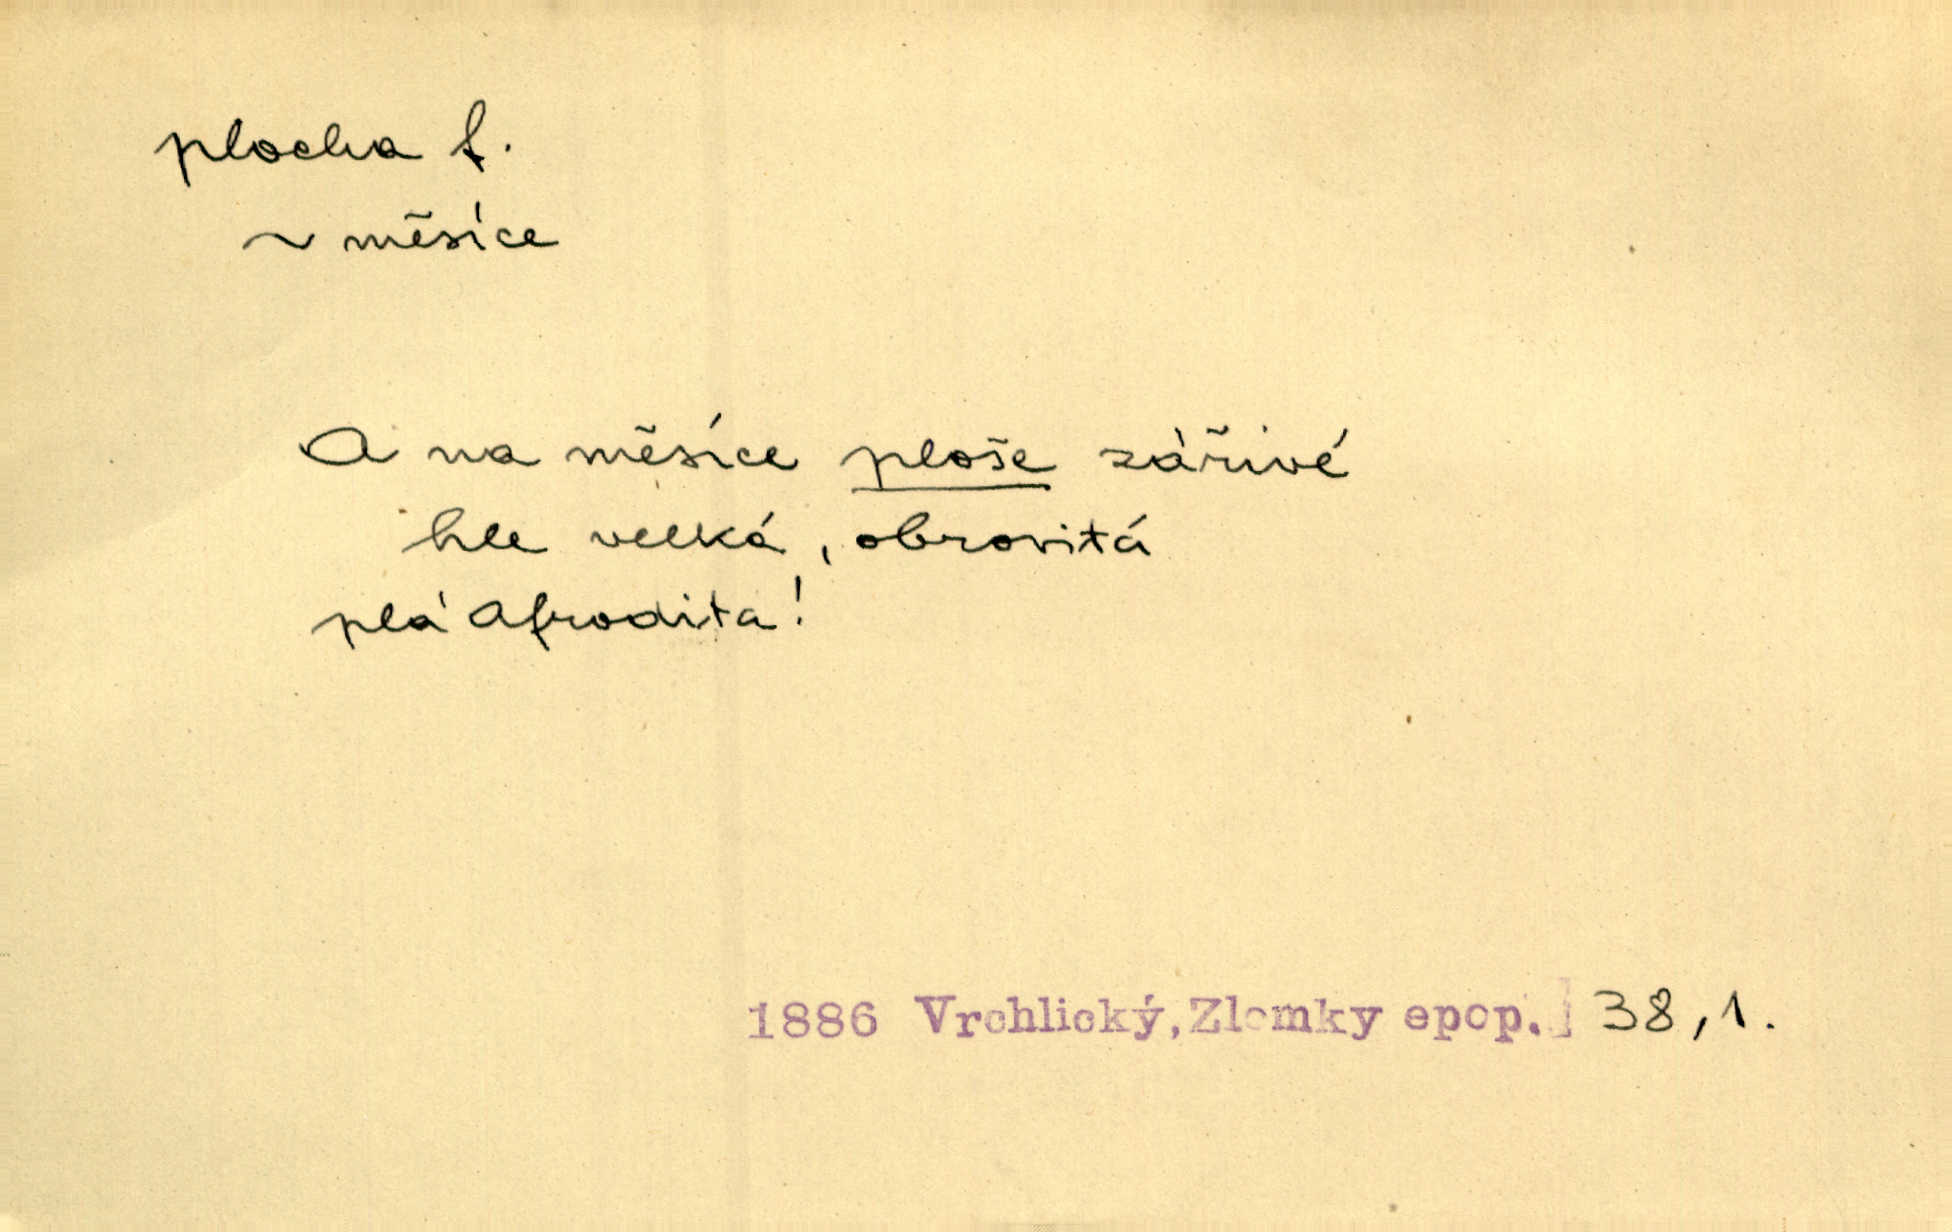 plocha f.
~ měsíce
A na měsíce ploše zářivé
hle velká, obrovitá
plá Afrodita!
1886 Vrchlický, Zlomky epop. 38,1.